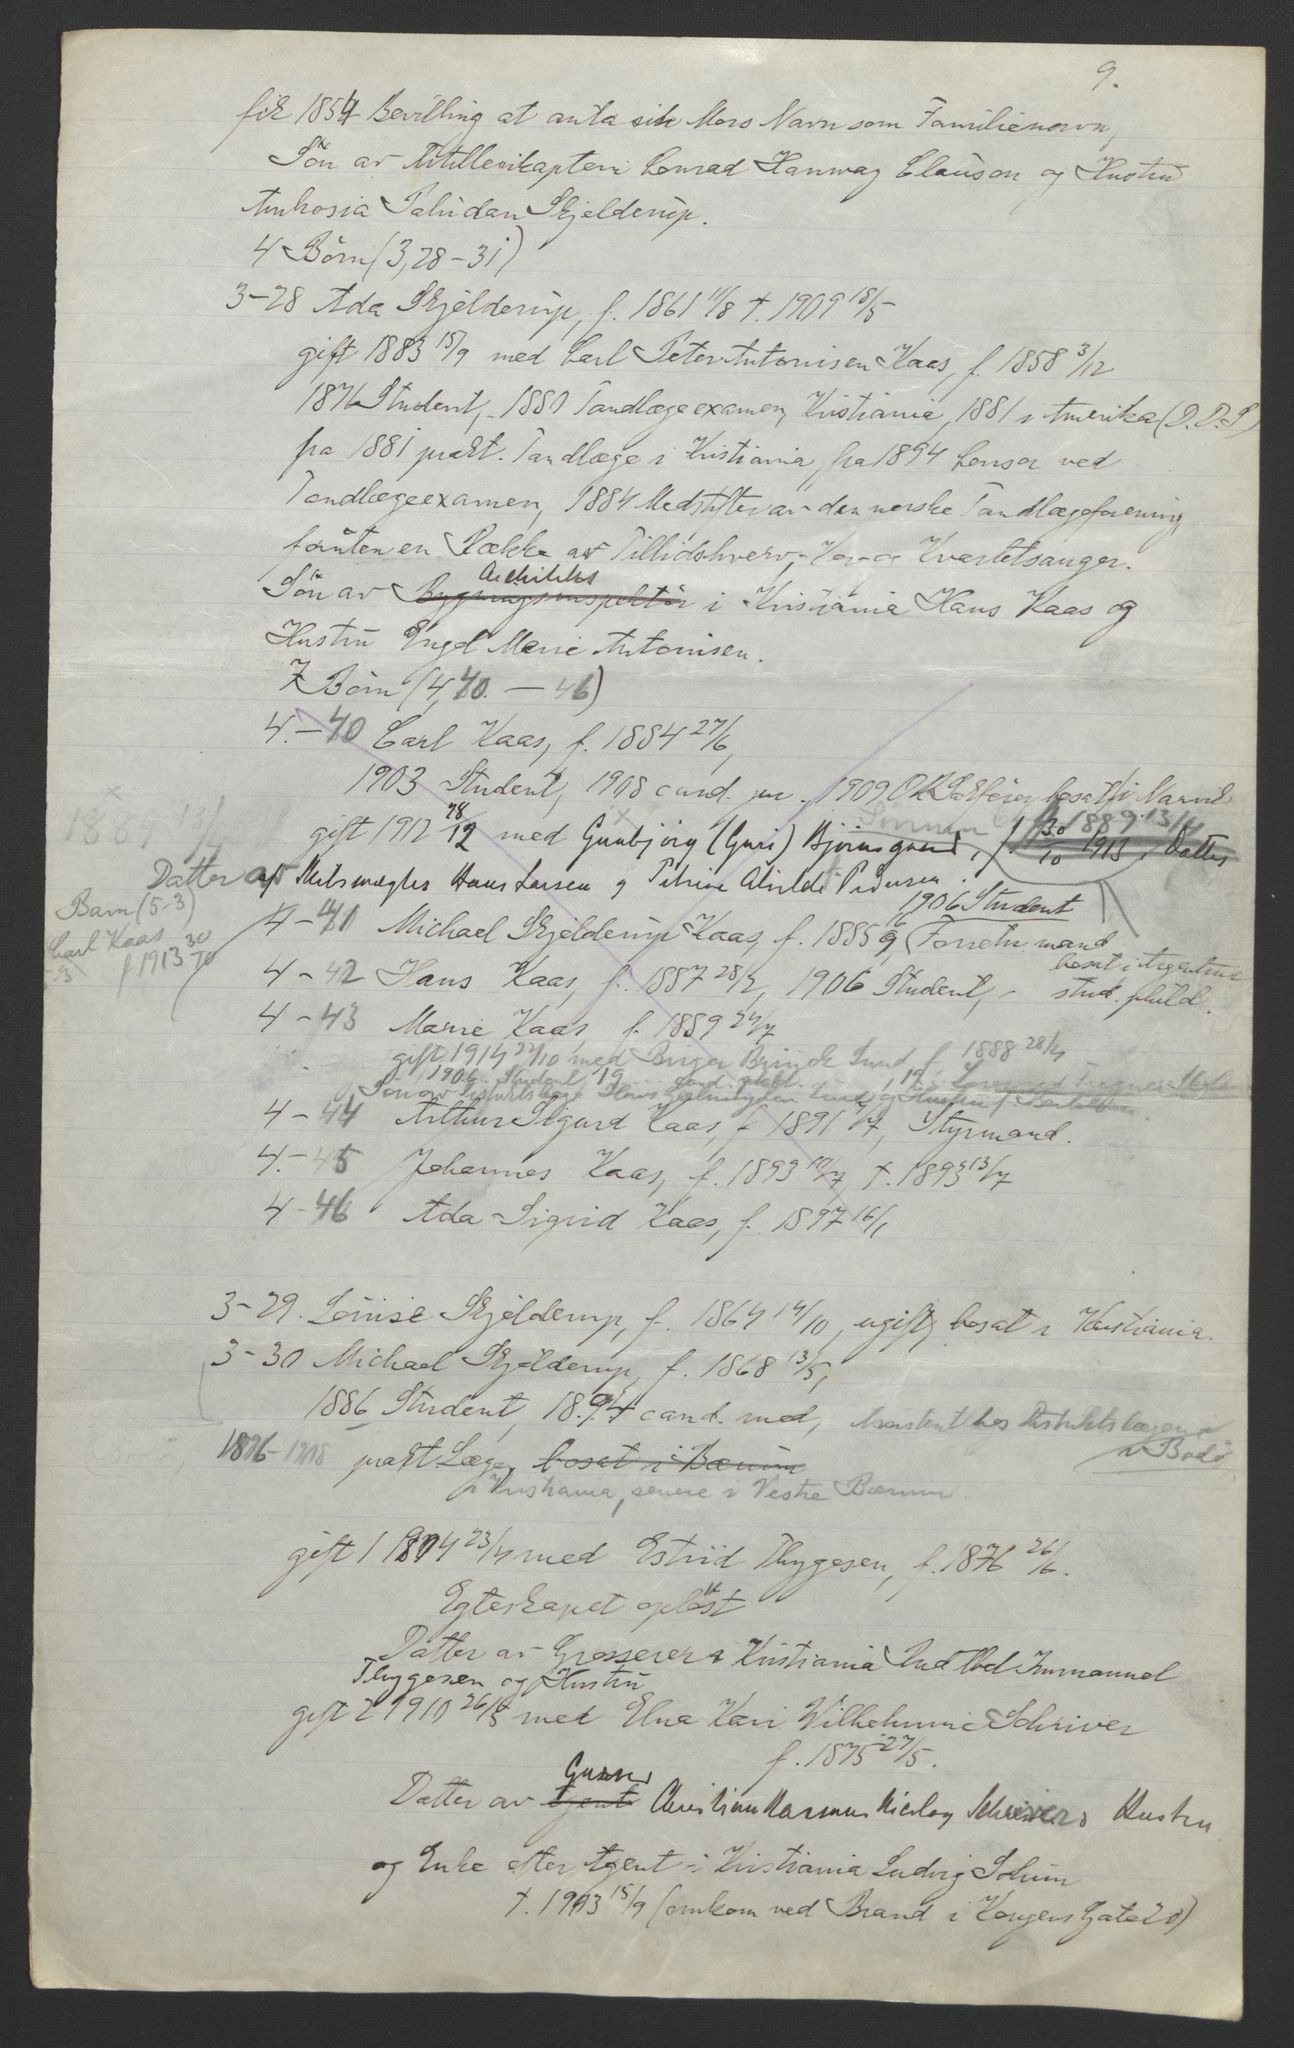 9.
fik 1854 Bevilling at anta sin Mors Navn som Familienavn,
Søn av Artillerikaptein Conrad Hanway Clauson og Hustru
Ambrosia Paludan Skjelderup.
4 Børn (3,28-31)
3-28 Ada Skjelderup, f. 1861 11/8 †. 1909 18/5
gift 1883 15/9 med Carl Peter Antonisen Kaas, f. 1858 3/12
1876 Student, 1880 Tandlægeexamen, Kristiania, 1881 i Amerika (D.D.S)
fra 1881 prakt. Tandlæge i Kristiania, fra 1894 Censor ved
Tandlægeexamen, 1884 Medstifter av den norske Tandlægeforening,
foruten en Række av Tillidshverv, Kor- og Kvartetsanger.
Arkitekt
Søn av Bygningsinspektør i Kristiania Hans Kaas og
Hustru Engel Marie Antonisen.
7 Børn (4,40. - 46)
4.-40 Carl Kaas, f. 1884 27/6,
1903 Student, 1908 cand. jur. 1909 bosat i Narvik
1889 13/4
gift 1912 28/12 med Gunbjörg (Guri) Björnsgaard, f. 30/10 1913, Datter
1889 13/4
Datter af Skibsmægler Hans Larsen og Petrine Pedersen.
Barn (5-3)
Carl Kaas
f 1913 30/10
1906 Student
4-41 Michael Skjelderup Kaas, f. 1885 Forretn. mand
bosat i Argentina
4-42 Hans Kaas, f. 1887 28/2, 1906 Student, stud. philol.
4-43 Marie Kaas f. 1889 24/7
gift 1914 med Birger Brinck Lund f. 1888 28/4
1906 Student, 19 cand. philol.
Søn av Distriktslæge Lund og Hustru f.
4-44 Arthur Sigurd Kaas, f 1891 /7, Styrmand.
4.-45 Johannes Kaas, f. 1893 10/7 †. 1893 13/7
4-46 Ada Sigrid Kaas, f. 1897 16/1
3-29. Louise Skjelderup, f. 1864 14/10, ugift, bosat i Kristiania.
3-30 Michael Skjelderup, f. 1868 13/5,
1886 Student, 1894 cand. med, Assistent hos Distriktslægen
i Bodø
1896-1908 prakt Læge, bosat i Bærum
i Kristiania, senere i Vestre Bærum.
gift 1 med Estrid Thygesen, f. 1876 26/6.
Egteskapet opløst
Datter av Grosserer i Kristiania Immanuel
Thygesen og Hustru
gift 2 1910 26/5 med Elna Kari Wilhelmine Schriver
f. 1875 27/5.
Datter av Agent Christian Rasmus Nicolay Schriver o Hustru
og Enke efter Agent i Kristiania Ludvig Solum
†. 1903 15/9 (omkom ved Brand i Kongens Gate 20)